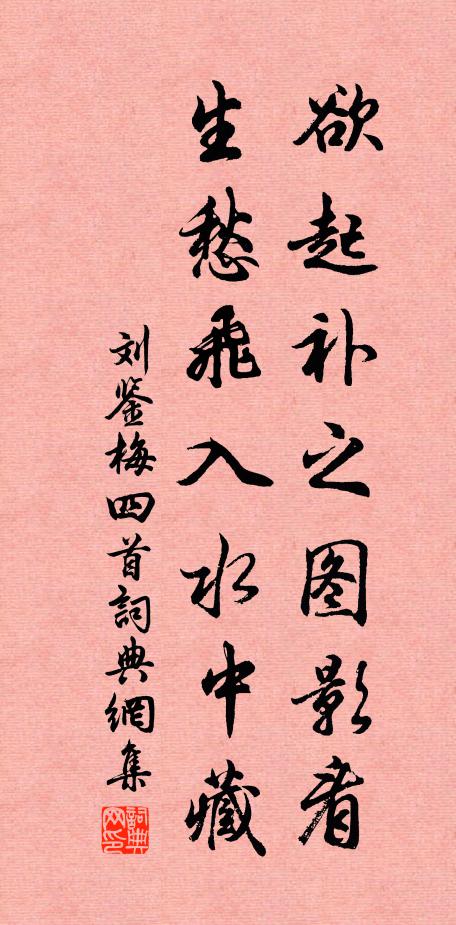 欲起补之图影看
生愁飛入水中藏
刘鉴梅四首詞典網集
詞典网印